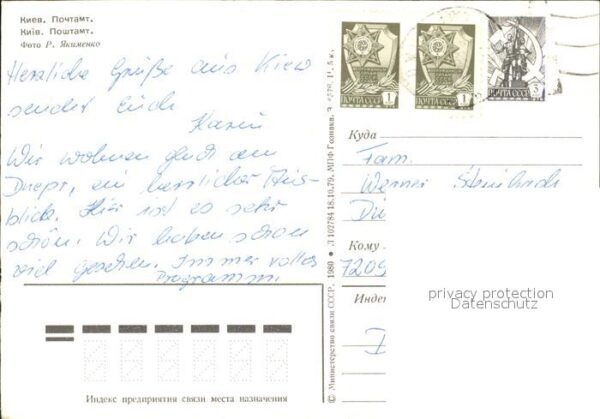 Киев. Почтамт.
Київ. Поштамт.
Фото Р. Якименко
Herzliche Grüße aus Kiew
sendet Euch
Karin
Wir wohnen gleich am
Dnepr, ein herrlicher Aus-
blick. Hier ist es sehr
schön. Wir haben schon
viel gesehen. Immer volles
Programm.
ПОЧТА СССР 1
ПОЧТА СССР 1
ПОЧТА СССР 3
Куда
Fam.
Werner
Кому
7209
Индекс
privacy protection
Datenschutz
Индекс предприятия связи места назначения
© Министерство связи СССР. 1980 • Л 102784 18.10.79. МПФ Гознака.